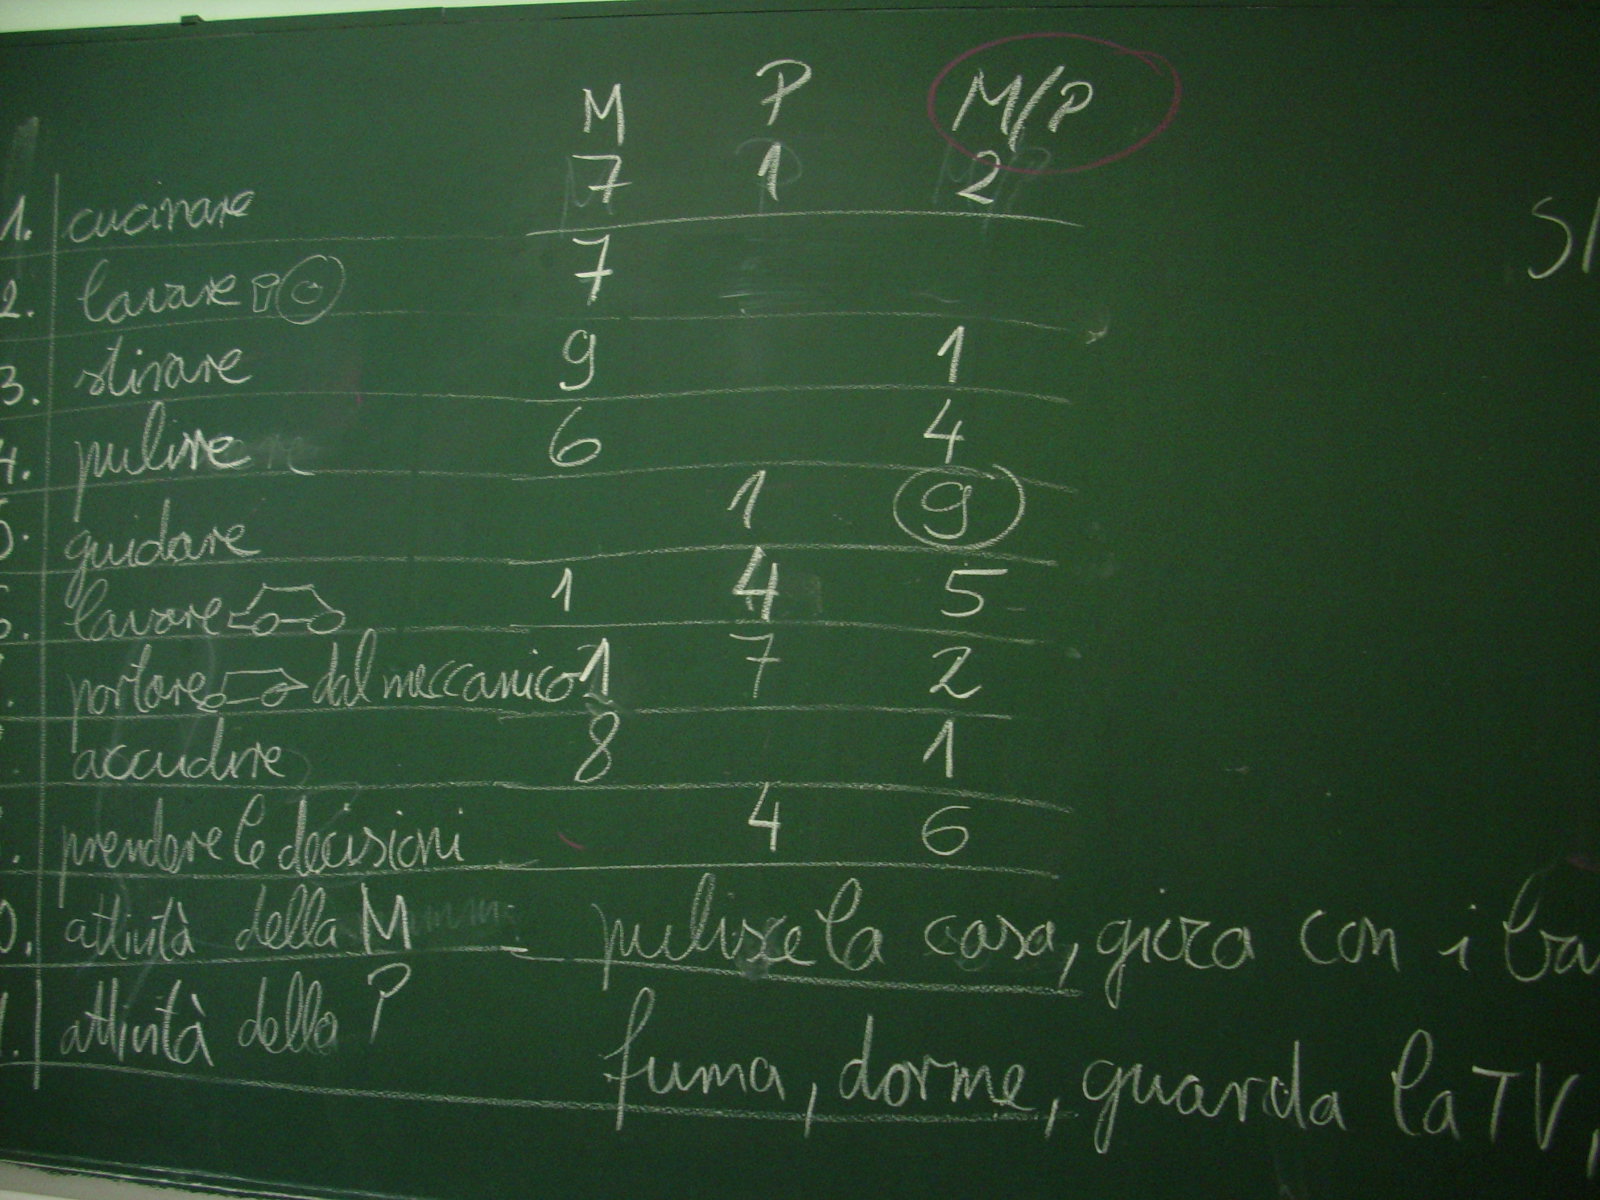 M P M/P
1. cucinare 7 1 2
2. lavare 7
3. stirare 9 1
4. pulire 6 4
5. guidare 1 9
6. lavare 1 4 5
portare dal meccanico 1 7 2
accudire 8 1
prendere le decisioni 4 6
0. attività della M pulisce la casa, gioca con i
1. attività della P fuma, dorme, guarda la TV,